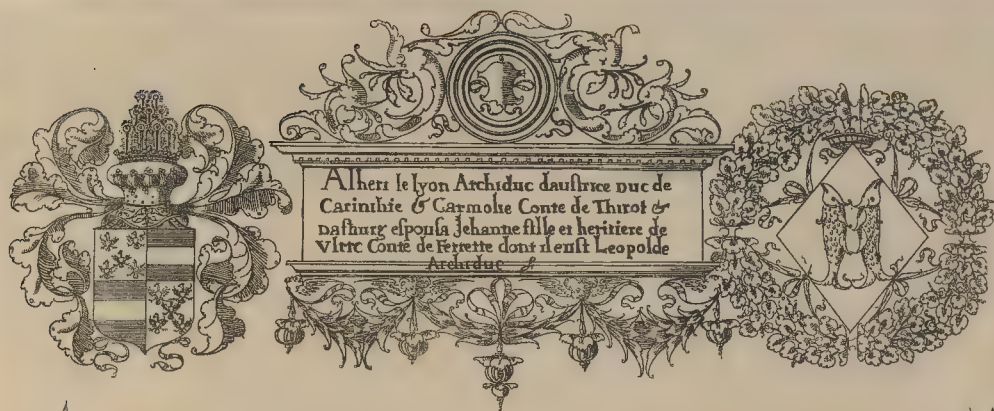 1
Albert le lyon Archiduc daustrice Duc de
Carinthie & Carniolie Conte de Thirol &
Dasburg espousa Jehanne fille et heritiere de
Vlric Conte de Ferrette dont il eust Leopolde
Archiduc &